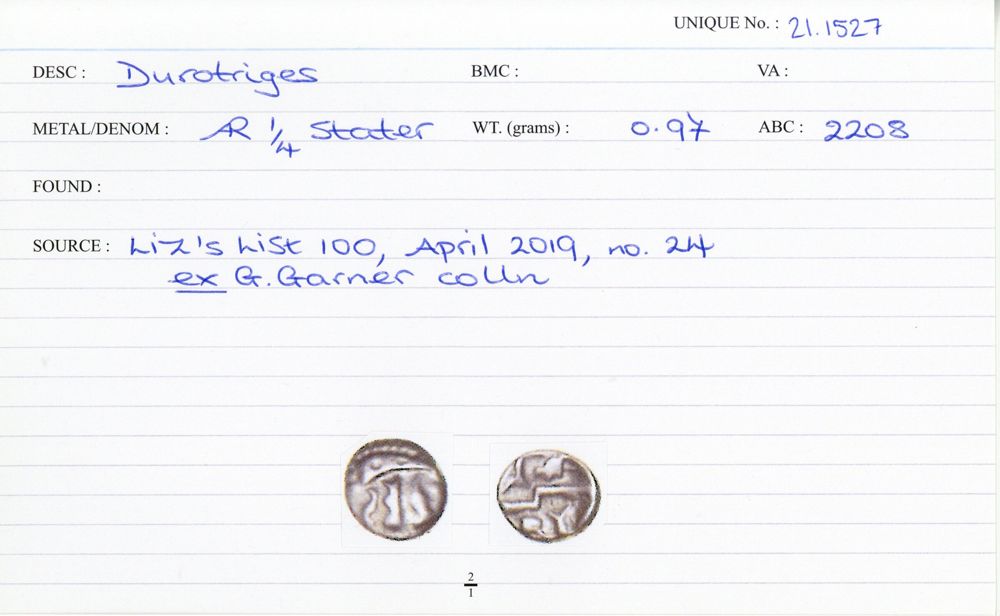 UNIQUE No. : 21.1527
DESC : Durotriges BMC : VA :
METAL/DENOM : AR 1/4 Stater WT. (grams) : 0.97 ABC : 2208
FOUND :
SOURCE : Liz's List 100, April 2019, no. 24
ex G. Garner colln
2/1